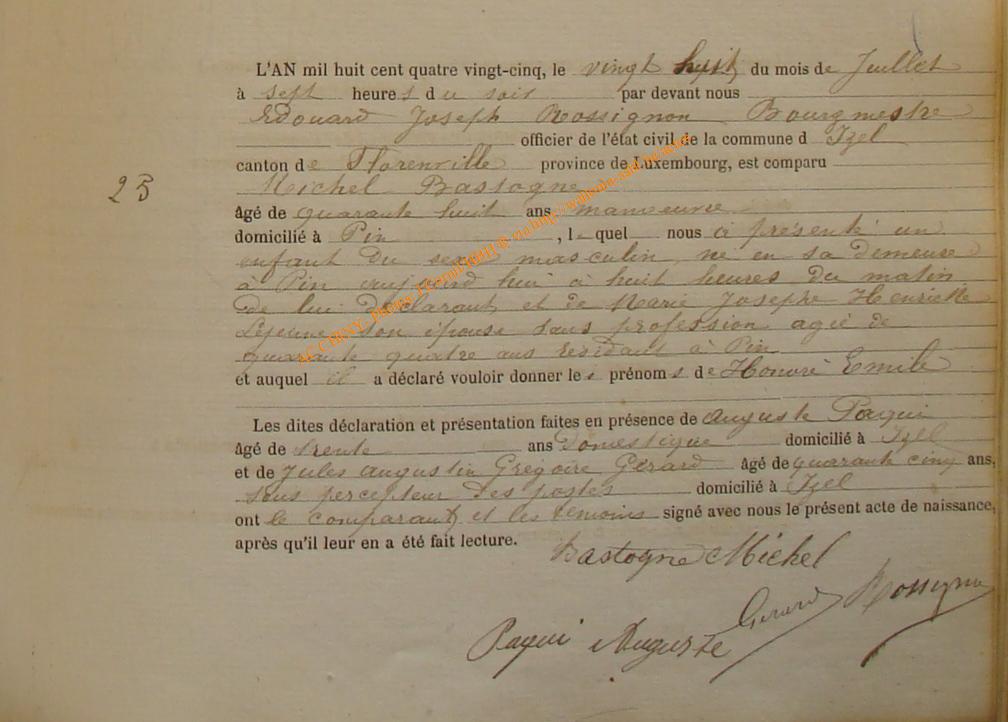 L'AN mil huit cent quatre vingt-cinq, le vingt huit du mois de Juillet
à sept heures du soir par devant nous
Edouard Joseph Rossignon Bourgmestre
officier de l'état civil de la commune d Izel
canton de Florenville province de Luxembourg, est comparu
Michel Bastogne
25
âgé de quarante huit ans manoeuvre
domicilié à Pin , le quel nous a présenté un
enfant du sexe masculin, né en sa demeure
à Pin aujourd hui à huit heures du matin
de lui déclarant et de Marie Josephe Henriette
Lejeune son épouse sans profession agée de
quarante quatre ans residant à Pin
et auquel il a déclaré vouloir donner les prénoms de Honoré Emile
Les dites déclaration et présentation faites en présence de Auguste Paqui
âgé de trente ans Domestique domicilié à Izel
et de Jules Augustin Grégoire Gérard âgé de quarante cinq ans,
sous percepteur des postes domicilié à Izel
ont le comparant et les témoins signé avec nous le présent acte de naissance,
après qu'il leur en a été fait lecture.
Bastogne Michel
Gerard Rossignon
Paqui Auguste